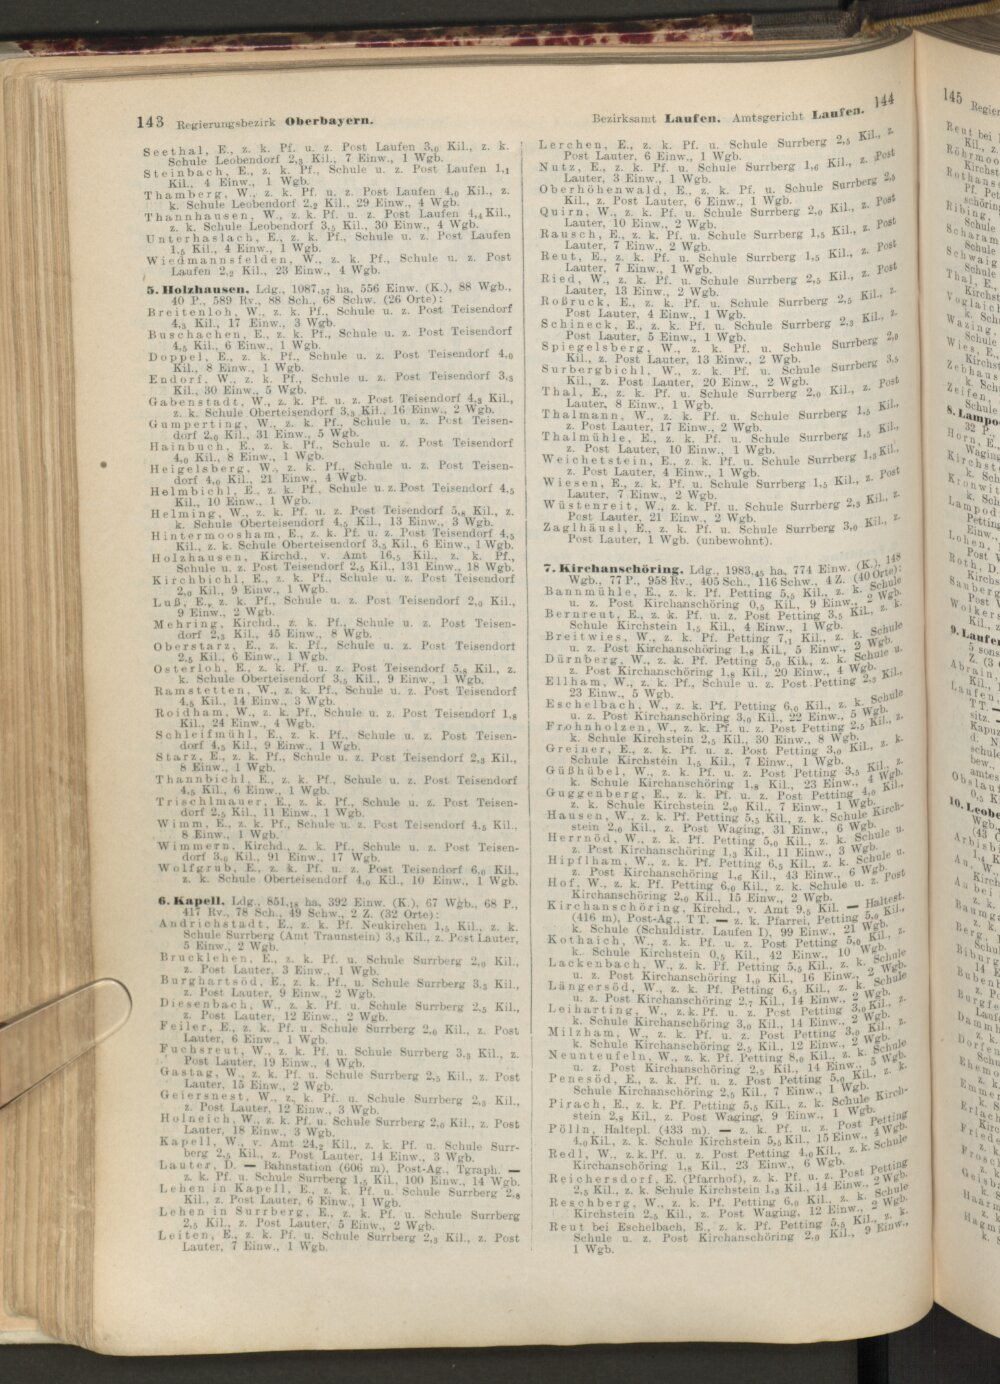 143 Regierungsbezirk Oberbayern.
Seethal, E., z. k. Pf. u. z. Post Laufen 3,0 Kil., z. k.
Schule Leobendorf 2,3 Kil., 7 Einw., 1 Wgb.
Steinbach, E., z. k. Pf., Schule u. z. Post Laufen 1,1
Kil., 4 Einw., 1 Wgb.
Thamberg, W., z. k. Pf. u. z. Post Laufen 4,0 Kil., z.
k. Schule Leobendorf 2,2 Kil. 29 Einw., 4 Wgb.
Thannhausen, W., z. k. Pf. u. z. Post Laufen 4,4 Kil.,
z. k. Schule Leobendorf 3,5 Kil., 30 Einw., 4 Wgb.
Unterhaslach, E., z. k. Pf., Schule u. z. Post Laufen
1,5 Kil., 4 Einw., 1 Wgb.
Wiedmannsfelden, W., z. k. Pf., Schule u. z. Post
Laufen 2,2 Kil., 23 Einw., 4 Wgb.
5. Holzhausen, Ldg., 1087,57 ha, 556 Einw. (K.), 88 Wgb.,
40 P., 589 Rv., 88 Sch., 68 Schw. (26 Orte):
Breitenloh, W., z. k. Pf., Schule u. z. Post Teisendorf
4,3 Kil., 17 Einw., 3 Wgb.
Buschachen, E., z. k. Pf., Schule u. z. Post Teisendorf
4,5 Kil., 6 Einw., 1 Wgb.
Doppel, E., z. k. Pf., Schule u. z. Post Teisendorf 4,0
Kil., 8 Einw., 1 Wgb.
Endorf, W., z. k. Pf., Schule u. z. Post Teisendorf 3,3
Kil., 30 Einw., 5 Wgb.
Gabenstadt, W., z. k. Pf. u. z. Post Teisendorf 4,3 Kil.,
z. k. Schule Oberteisendorf 3,3 Kil., 16 Einw., 2 Wgb.
Gumperting, W., z. k. Pf., Schule u. z. Post Teisen-
dorf 2,0 Kil., 31 Einw., 5 Wgb.
Hainbuch, E., z. k. Pf., Schule u. z. Post Teisendorf
4,0 Kil., 8 Einw., 1 Wgb.
Heigelsberg, W., z. k. Pf., Schule u. z. Post Teisen-
dorf 4,0 Kil., 21 Einw., 4 Wgb.
Helmbichl, E., z. k. Pf., Schule u. z. Post Teisendorf 4,5
Kil., 10 Einw., 1 Wgb.
Helming, W., z. k. Pf. u. z. Post Teisendorf 5,8 Kil., z.
k. Schule Oberteisendorf 4,5 Kil., 13 Einw., 3 Wgb.
Hintermoosham, E., z. k. Pf. u. z. Post Teisendorf 4,5
Kil., z. k. Schule Oberteisendorf 3,5 Kil., 6 Einw., 1 Wgb.
Holzhausen, Kirchd., v. Amt 16,5 Kil., z. k. Pf.,
Schule u. z. Post Teisendorf 2,5 Kil., 131 Einw., 18 Wgb.
Kirchbichl, E., z. k. Pf., Schule u. z. Post Teisendorf
2,0 Kil., 9 Einw., 1 Wgb.
Luß, E., z. k. Pf., Schule u. z. Post Teisendorf 2,0 Kil.,
9 Einw., 2 Wgb.
Mehring, Kirchd., z. k. Pf., Schule u. z. Post Teisen-
dorf 2,3 Kil., 45 Einw., 8 Wgb.
Oberstarz, E., z. k. Pf., Schule u. z. Post Teisendorf
2,5 Kil., 6 Einw., 1 Wgb.
Osterloh, E., z. k. Pf. u. z. Post Teisendorf 5,8 Kil., z.
k. Schule Oberteisendorf 3,5 Kil., 9 Einw., 1 Wgb.
Ramstetten, W., z. k. Pf., Schule u. z. Post Teisendorf
4,5 Kil., 14 Einw., 3 Wgb.
Roidham, W., z. k. Pf., Schule u. z. Post Teisendorf 1,8
Kil., 24 Einw., 4 Wgb.
Schleifmühl, E., z. k. Pf., Schule u. z. Post Teisen-
dorf 4,5 Kil., 9 Einw., 1 Wgb.
Starz, E., z. k. Pf., Schule u. z. Post Teisendorf 2,3 Kil.,
8 Einw., 1 Wgb.
Thannbichl, E., z. k. Pf., Schule u. z. Post Teisendorf
4,5 Kil., 6 Einw., 1 Wgb.
Trischlmauer, E., z. k. Pf., Schule u. z. Post Teisen-
dorf 2,5 Kil., 11 Einw., 1 Wgb.
Wimm, E., z. k. Pf., Schule u. z. Post Teisendorf 4,5 Kil.,
8 Einw., 1 Wgb.
Wimmern, Kirchd., z. k. Pf., Schule u. z. Post Teisen-
dorf 3,0 Kil., 91 Einw., 17 Wgb.
Wolfgrub, E., z. k. Pf. u. z. Post Teisendorf 6,0 Kil.,
z. k. Schule Oberteisendorf 4,0 Kil., 10 Einw., 1 Wgb.
6. Kapell, Ldg., 851,18 ha, 392 Einw. (K.), 67 Wgb., 68 P.,
417 Rv., 78 Sch., 49 Schw., 2 Z. (32 Orte):
Andrichstadt, E., z. k. Pf. Neukirchen 1,5 Kil., z. k.
Schule Surrberg (Amt Traunstein) 3,3 Kil., z. Post Lauter,
5 Einw., 2 Wgb.
Brucklehen, E., z. k. Pf. u. Schule Surrberg 2,0 Kil.,
z. Post Lauter, 3 Einw., 1 Wgb.
Burghartsöd, E., z. k. Pf. u. Schule Surrberg 3,5 Kil.,
z. Post Lauter, 9 Einw., 2 Wgb.
Diesenbach, W., z. k. Pf. u. Schule Surrberg 2,5 Kil.,
z. Post Lauter, 12 Einw., 2 Wgb.
Feiler, E., z. k. Pf. u. Schule Surrberg 2,0 Kil., z. Post
Lauter, 6 Einw., 1 Wgb.
Fuchsreut, W., z. k. Pf. u. Schule Surrberg 3,3 Kil., z.
Post Lauter, 19 Einw., 4 Wgb.
Gastag, W., z. k. Pf. u. Schule Surrberg 2,5 Kil., z. Post
Lauter, 15 Einw., 2 Wgb.
Geiersnest, W., z. k. Pf. u. Schule Surrberg 2,3 Kil.,
z. Post Lauter, 12 Einw., 3 Wgb.
Holneich, W., z. k. Pf. u. Schule Surrberg 2,0 Kil., z. Post
Lauter, 18 Einw., 3 Wgb.
Kapell, W., v. Amt 24,2 Kil., z. k. Pf. u. Schule Surr-
berg 2,5 Kil., z. Post Lauter, 14 Einw., 3 Wgb.
Lauter, D. — Bahnstation (606 m), Post-Ag., Tgraph. —
z. k. Pf. u. Schule Surrberg 1,5 Kil., 100 Einw., 14 Wgb.
Lehen in Kapell, E., z. k. Pf. u. Schule Surrberg 2,8
Kil., z. Post Lauter, 6 Einw., 1 Wgb.
Lehen in Surrberg, E., z. k. Pf. u. Schule Surrberg
2,5 Kil., z. Post Lauter, 5 Einw., 2 Wgb.
Leiten, E., z. k. Pf. u. Schule Surrberg 2,3 Kil., z. Post
Lauter, 7 Einw., 1 Wgb.
Bezirksamt Laufen. Amtsgericht Laufen. 144
Lerchen, E., z. k. Pf. u. Schule Surrberg 2,5 Kil., z.
Post Lauter, 6 Einw., 1 Wgb.
Nutz, E., z. k. Pf. u. Schule Surrberg 1,6 Kil., z. Post
Lauter, 3 Einw., 1 Wgb.
Oberhöhenwald, E., z. k. Pf. u. Schule Surrberg 2,5
Kil., z. Post Lauter, 6 Einw., 1 Wgb.
Quirn, W., z. k. Pf. u. Schule Surrberg 2,0 Kil., z. Post
Lauter, 10 Einw., 2 Wgb.
Rausch, E., z. k. Pf. u. Schule Surrberg 1,5 Kil., z. Post
Lauter, 7 Einw., 2 Wgb.
Reut, E., z. k. Pf. u. Schule Surrberg 1,5 Kil., z. Post
Lauter, 7 Einw., 1 Wgb.
Ried, W., z. k. Pf. u. Schule Surrberg 2,5 Kil., z. Post
Lauter, 13 Einw., 2 Wgb.
Roßruck, E., z. k. Pf. u. Schule Surrberg 2,5 Kil., z.
Post Lauter, 4 Einw., 1 Wgb.
Schineck, E., z. k. Pf. u. Schule Surrberg 2,3 Kil., z.
Post Lauter, 5 Einw., 1 Wgb.
Spiegelsberg, W., z. k. Pf. u. Schule Surrberg 2,0
Kil., z. Post Lauter, 13 Einw., 2 Wgb.
Surbergbichl, W., z. k. Pf. u. Schule Surrberg 3,5
Kil., z. Post Lauter, 20 Einw., 2 Wgb.
Thal, E., z. k. Pf. u. Schule Surrberg 2,0 Kil., z. Post
Lauter, 8 Einw., 1 Wgb.
Thalmann, W., z. k. Pf. u. Schule Surrberg 1,5 Kil.,
z. Post Lauter, 17 Einw., 2 Wgb.
Thalmühle, E., z. k. Pf. u. Schule Surrberg 1,5 Kil.,
z. Post Lauter, 10 Einw., 1 Wgb.
Weichetstein, E., z. k. Pf. u. Schule Surrberg 1,3 Kil.,
z. Post Lauter, 4 Einw., 1 Wgb.
Wiesen, E., z. k. Pf. u. Schule Surrberg 1,5 Kil., z. Post
Lauter, 7 Einw., 2 Wgb.
Wüstenreit, W., z. k. Pf. u. Schule Surrberg 2,3 Kil., z.
Post Lauter, 21 Einw., 2 Wgb.
Zaglhäusl, E., z. k. Pf. u. Schule Surrberg 3,0 Kil., z.
Post Lauter, 1 Wgb. (unbewohnt).
7. Kirchanschöring, Ldg., 1983,45 ha, 774 Einw. (K.), 148
Wgb., 77 P., 958 Rv., 405 Sch., 116 Schw., 4 Z. (40 Orte):
Bannmühle, E., z. k. Pf. Petting 5,5 Kil., z. k. Schule
u. z. Post Kirchanschöring 0,5 Kil., 9 Einw., 2 Wgb.
Bernreut, E., z. k. Pf. u. z. Post Petting 3,5 Kil., z. k.
Schule Kirchstein 1,5 Kil., 4 Einw., 1 Wgb.
Breitwies, W., z. k. Pf. Petting 7,1 Kil., z. k. Schule
u. z. Post Kirchanschöring 1,8 Kil., 5 Einw., 2 Wgb.
Dürnberg, W., z. k. Pf. Petting 5,0 Kil., z. k. Schule u.
z. Post Kirchanschöring 1,8 Kil., 20 Einw., 4 Wgb.
Ellham, W., z. k. Pf., Schule u. z. Post Petting 2,3 Kil.,
23 Einw., 5 Wgb.
Eschelbach, W., z. k. Pf. Petting 6,0 Kil., z. k. Schule
u. z. Post Kirchanschöring 3,0 Kil., 22 Einw., 5 Wgb.
Frohnholzen, W., z. k. Pf. u. z. Post Petting 2,5 Kil., z.
k. Schule Kirchstein 2,5 Kil., 30 Einw., 8 Wgb.
Greiner, E., z. k. Pf. u. z. Post Petting 3,0 Kil., z. k.
Schule Kirchstein 1,5 Kil., 7 Einw., 1 Wgb.
Güßhübel, W., z. k. Pf. u. z. Post Petting 3,5 Kil., z.
k. Schule Kirchanschöring 1,8 Kil., 23 Einw., 4 Wgb.
Guggenberg, E., z. k. Pf. u. z. Post Petting 4,0 Kil.,
z. k. Schule Kirchstein 2,0 Kil., 7 Einw., 1 Wgb.
Hausen, W., z. k. Pf. Petting 5,5 Kil., z. k. Schule Kirch-
stein 2,0 Kil., z. Post Waging, 31 Einw., 6 Wgb.
Herrnöd, W., z. k. Pf. Petting 5,0 Kil., z. k. Schule u.
z. Post Kirchanschöring 1,3 Kil., 11 Einw., 3 Wgb.
Hipflham, W., z. k. Pf. Petting 6,5 Kil., z. k. Schule u.
z. Post Kirchanschöring 1,6 Kil., 43 Einw., 6 Wgb.
Hof, W., z. k. Pf. Petting 6,0 Kil., z. k. Schule u. z. Post
Kirchanschöring 2,0 Kil., 15 Einw., 2 Wgb.
Kirchanschöring, Kirchd., v. Amt 9,5 Kil. — Haltest.
(416 m), Post-Ag., TT. — z. k. Pfarrei, Petting 5,0 Kil.,
k. Schule (Schuldistr. Laufen I), 99 Einw., 21 Wgb.
Kothaich, W., z. k. Pf. u. z. Post Petting 5,0 Kil., z.
k. Schule Kirchstein 0,5 Kil., 42 Einw., 10 Wgb.
Lackenbach, W., z. k. Pf. Petting 5,5 Kil., z. k. Schule
u. z. Post Kirchanschöring 1,0 Kil., 16 Einw., 2 Wgb.
Längersöd, W., z. k. Pf. Petting 6,5 Kil., z. k. Schule
u. z. Post Kirchanschöring 2,7 Kil., 14 Einw., 2 Wgb.
Leiharting, W., z. k. Pf. u. z. Post Petting 3,0 Kil., z.
k. Schule Kirchanschöring 3,0 Kil., 14 Einw., 2 Wgb.
Milzham, W., z. k. Pf. u. z. Post Petting 3,0 Kil., z.
k. Schule Kirchanschöring 2,5 Kil., 12 Einw., 2 Wgb.
Neunteufeln, W., z. k. Pf. Petting 8,0 Kil., z. k. Schule
u. z. Post Kirchanschöring 2,5 Kil., 14 Einw., 5 Wgb.
Penesöd, E., z. k. Pf. u. z. Post Petting 5,0 Kil., z. k.
Schule Kirchanschöring 2,5 Kil., 7 Einw., 1 Wgb.
Pirach, E., z. k. Pf. Petting 5,5 Kil., z. k. Schule Kirch-
stein 2,8 Kil., z. Post Waging, 9 Einw., 1 Wgb.
Pölln, Haltepl. (433 m). — z. k. Pf. u. z. Post Petting
4,0 Kil., z. k. Schule Kirchstein 5,5 Kil., 15 Einw., 4 Wgb.
Redl, W., z. k. Pf. u. z. Post Petting 4,0 Kil., z. k. Schule
Kirchanschöring 1,8 Kil., 23 Einw., 6 Wgb.
Reichersdorf, E. (Pfarrhof), z. k. Pf. u. z. Post Petting
2,5 Kil., z. k. Schule Kirchstein 1,3 Kil., 14 Einw., 2 Wgb.
Reschberg, W., z. k. Pf. Petting 6,0 Kil., z. k. Schule
Kirchstein 2,5 Kil., z. Post Waging, 12 Einw., 2 Wgb.
Reut bei Eschelbach, E., z. k. Pf. Petting 5,5 Kil., z. k.
Schule u. z. Post Kirchanschöring 2,0 Kil., 9 Einw.,
1 Wgb.
145